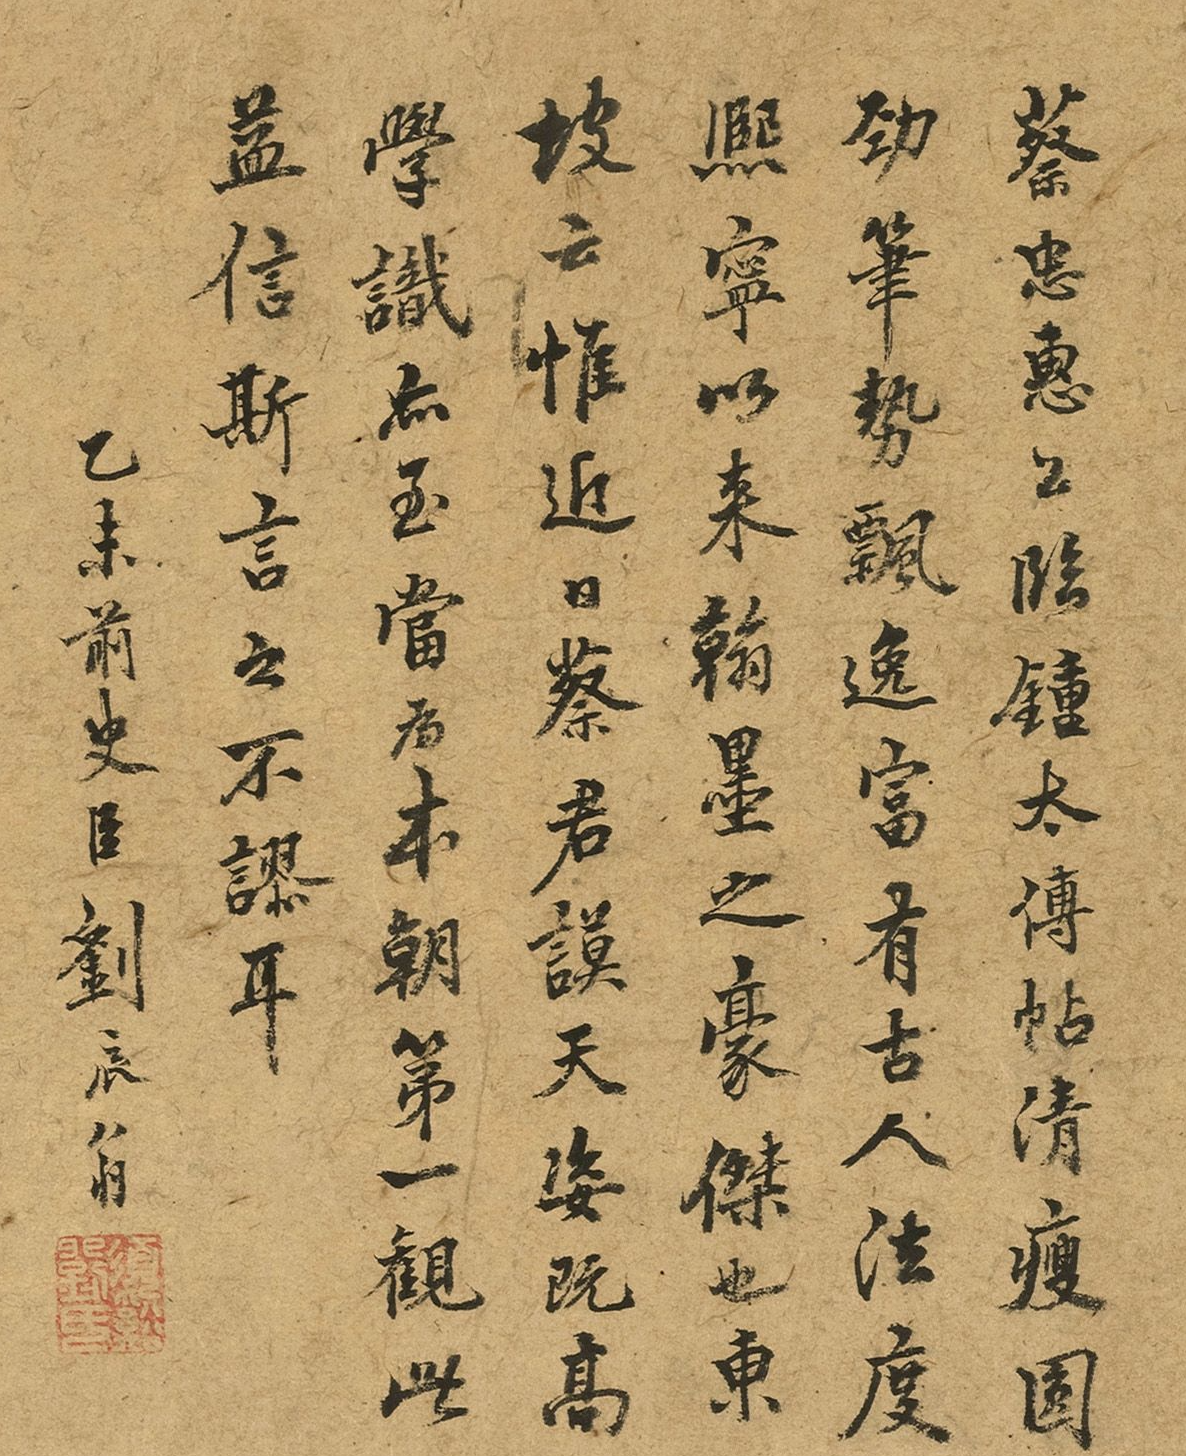 蔡忠惠公臨鍾太傅帖清瘦圓
勁筆勢飄逸富有古人法度
熈寧以来翰墨之豪傑也東
坡云惟近日蔡君謨天姿既高
學識亦至當為本朝第一觀此
益信斯言之不謬耳
乙未前史臣劉辰翁